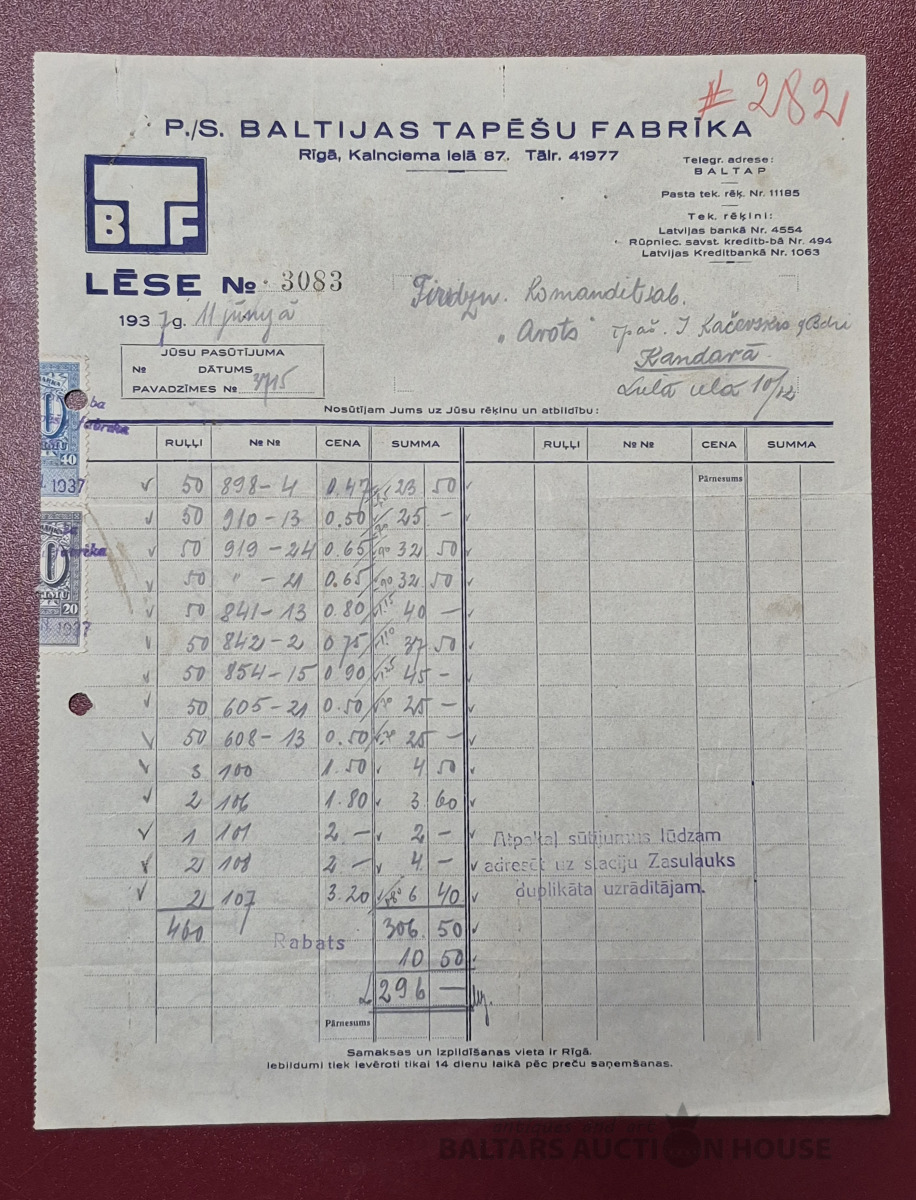 # 282
P./S. BALTIJAS TAPĒŠU FABRĪKA
Rīgā, Kalnciema ielā 87. Tālr. 41977
Telegr. adrese:
BALTAP
Pasta tek. rēķ. Nr. 11185
Tek. rēķini:
Latvijas bankā Nr. 4554
Rūpniec. savst. kreditb-bā Nr. 494
Latvijas Kreditbankā Nr. 1063
BTF
LĒSE № 3083
1937 g. 11 jūnijā
Komanditsab.
"Arots" īpaš. I
Kandavā
Lielā ielā 10/12
JŪSU PASŪTĪJUMA
№ DATUMS
PAVADZĪMES № 3715
Nosūtījam Jums uz Jūsu rēķinu un atbildību:
RUĻĻI № № CENA SUMMA RUĻĻI № № CENA SUMMA
Pārnesums
40
1937
20
1937
50 898-4 0.47 23 50
50 910-13 0.50 25 -
50 919-24 0.65 32 50
50 " -21 0.65 32 50
50 841-13 0.80 40 -
50 842-2 0.75 37 50
50 854-15 0.90 45 -
50 605-21 0.50 25 -
50 608-13 0.50 25 -
3 100 1.50 4 50
2 106 1.80 3 60
1 101 2 - 2 -
2 108 2 - 4 -
2 107 3.20 6 40
460 306 50
Rabats 10 50
L 296 -
Atpakaļ sūtījumus lūdzam
adresēt uz staciju Zasulauks
duplikāta uzrādītājam.
Pārnesums
Samaksas un izpildīšanas vieta ir Rīgā.
Iebildumi tiek ievēroti tikai 14 dienu laikā pēc preču saņemšanas.
BALTARS AUCTION HOUSE